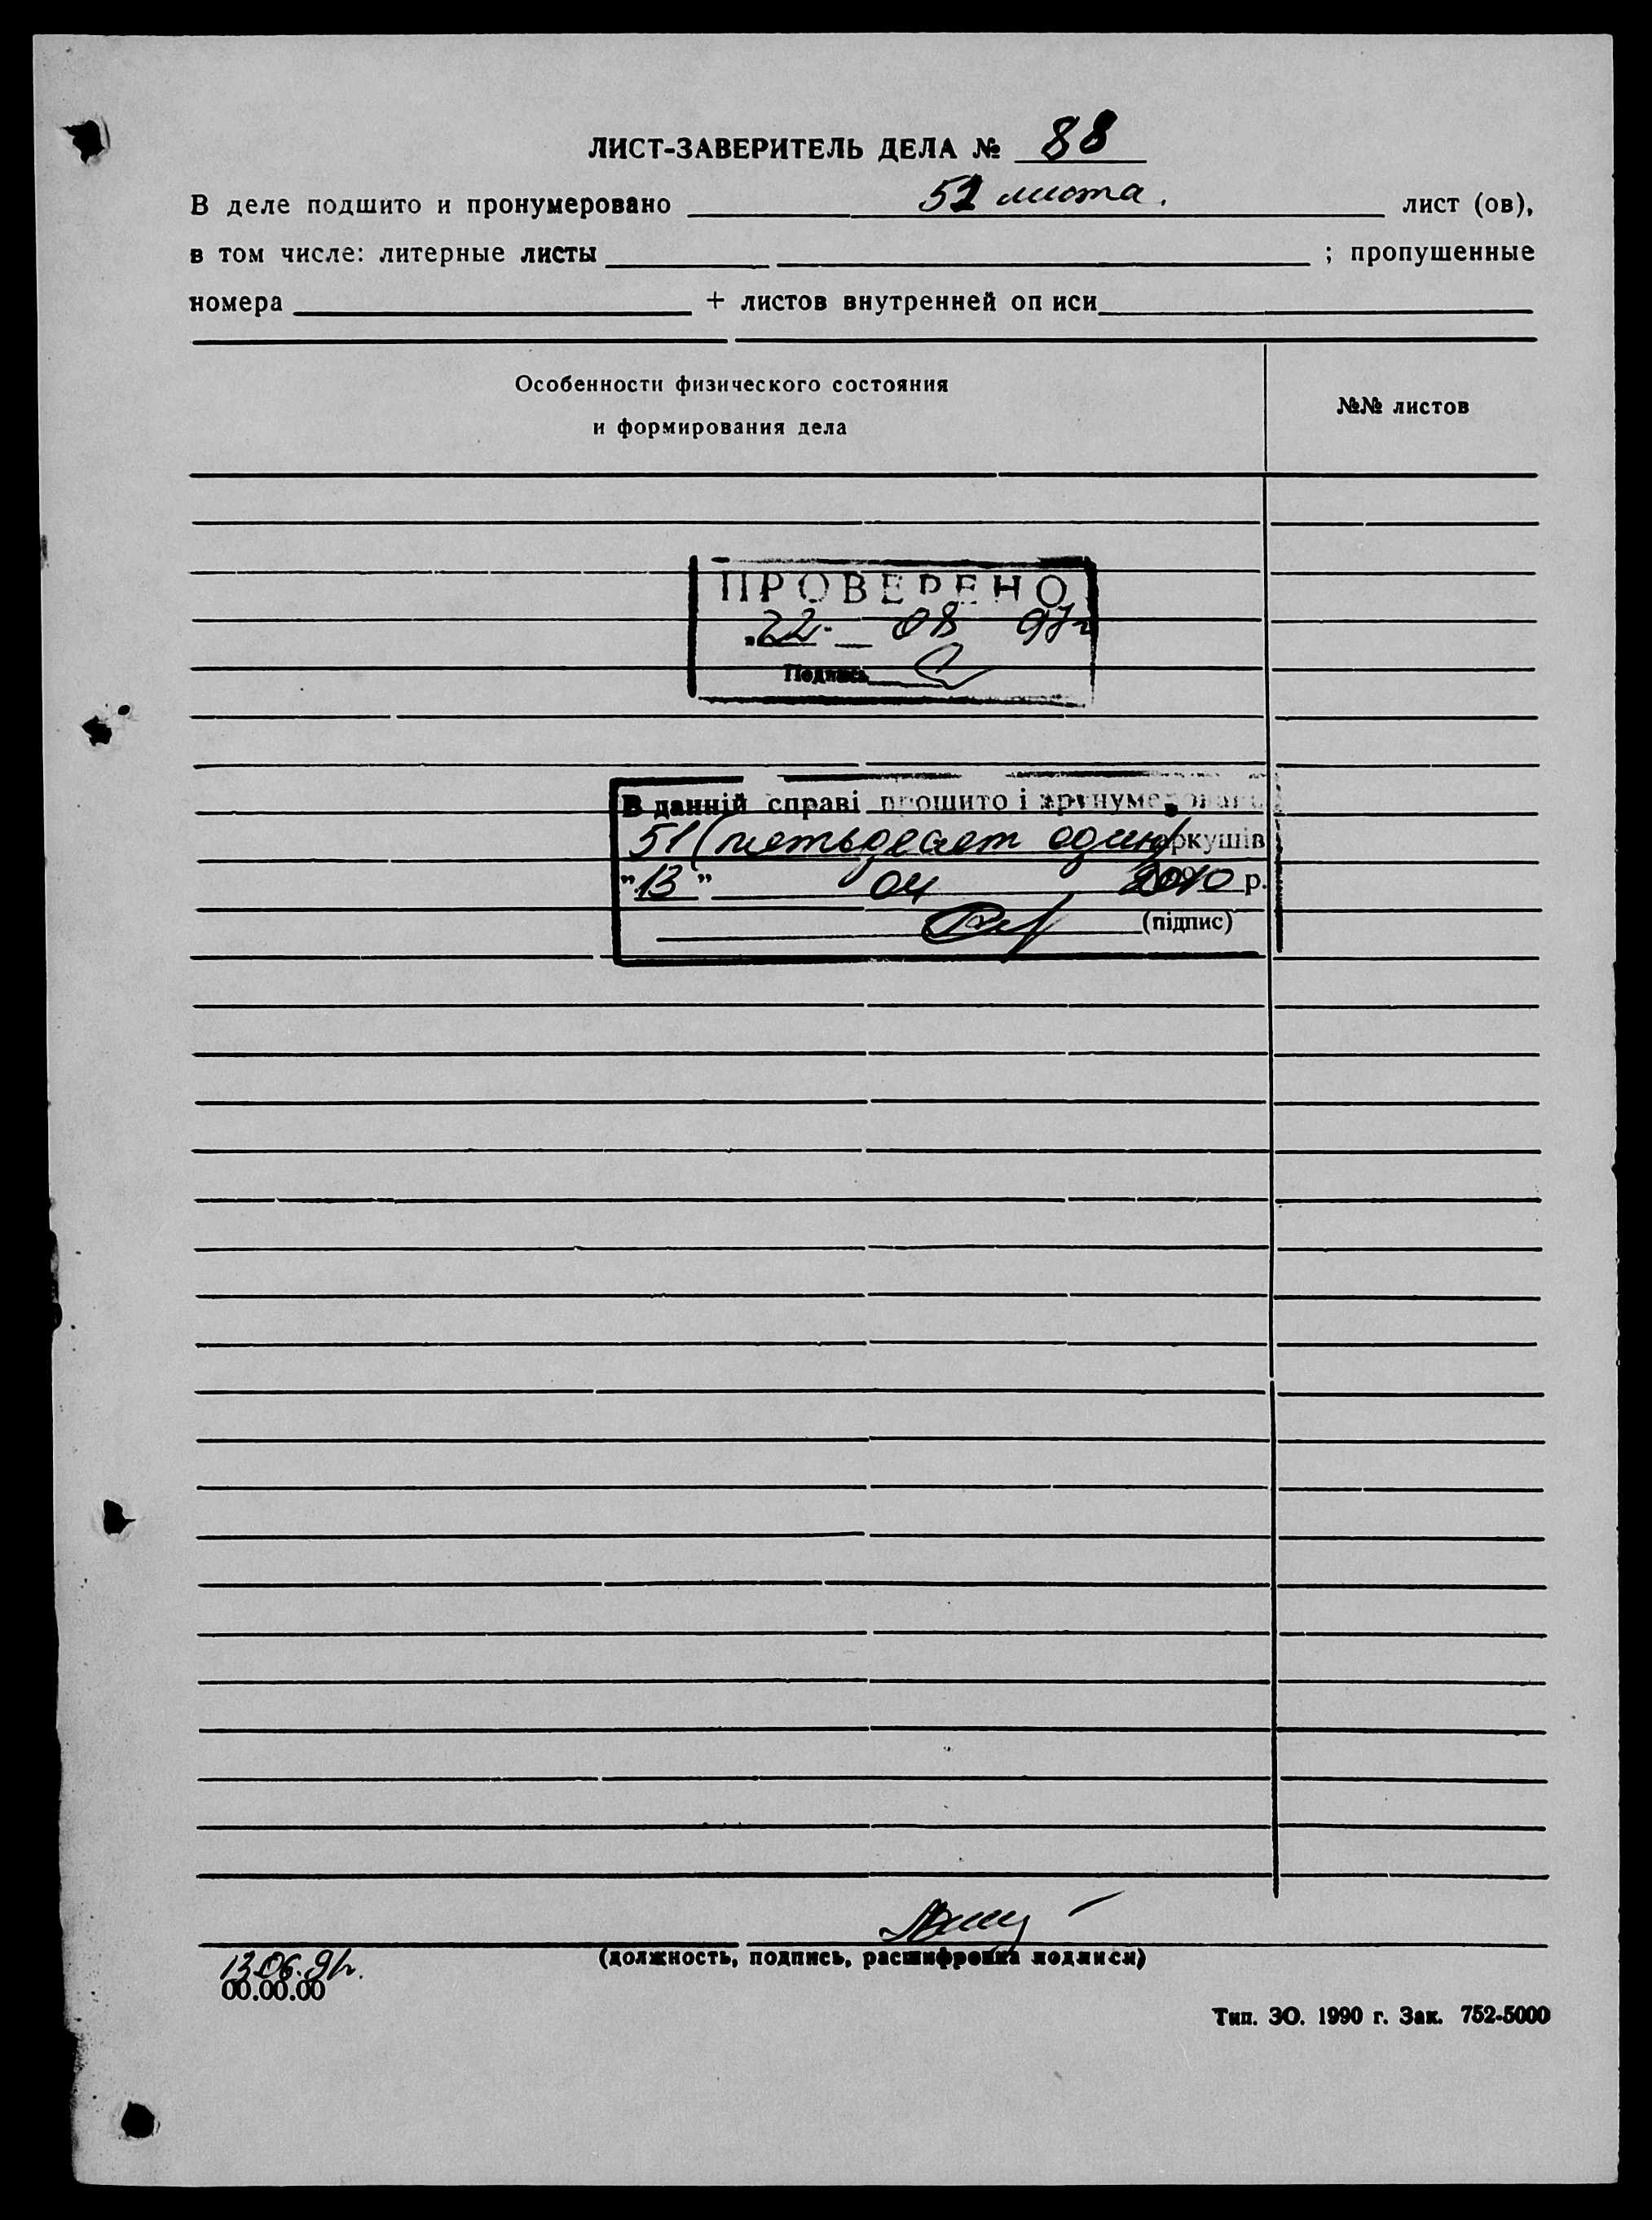 ЛИСТ-ЗАВЕРИТЕЛЬ ДЕЛА № 88
В деле подшито и пронумеровано 51 листа. лист (ов),
в том числе: литерные листы ; пропушенные
номера + листов внутренней оп иси
Особенности физического состояния
и формирования дела
№№ листов
ПРОВЕРЕНО
„22" 08 97г
Подпись
В данній справі прошито і пронумеровано
51 (петьдесят один) аркушів
"13" 04 2010 р.
(підпис)
(должность, подпись, расшифровка подписи)
13.06.91г.
00.00.00
Тип. ЗО. 1990 г. Зак. 752-5000